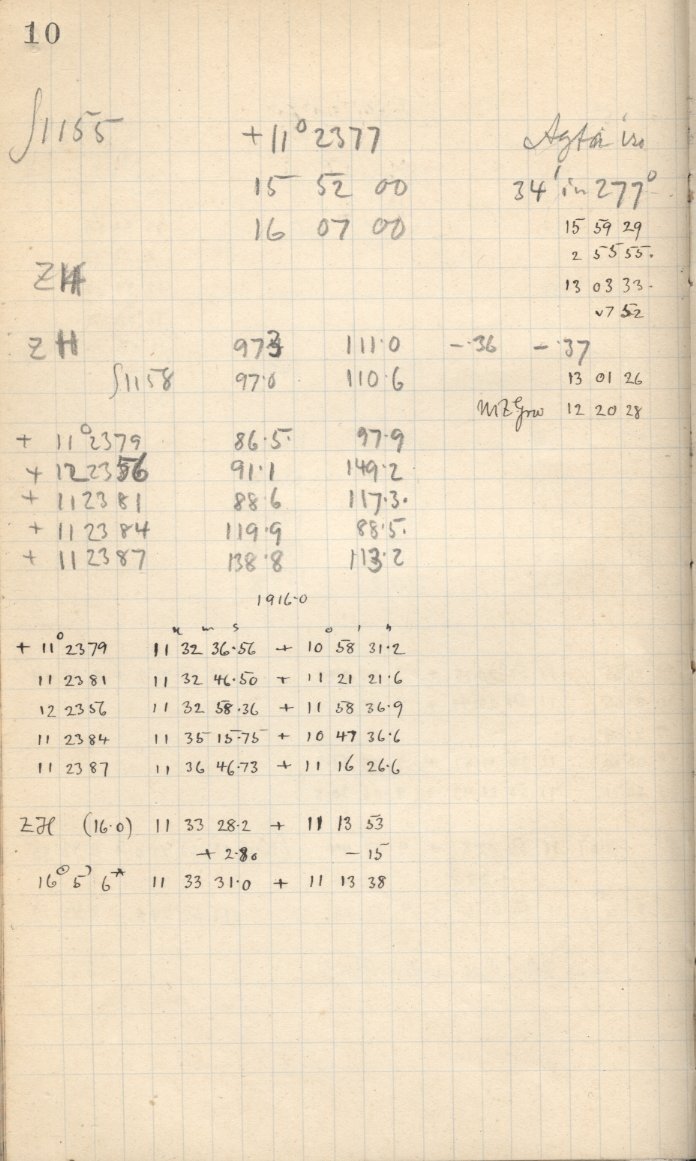 10
∫1155 +11° 2377
15 52 00 34' in 277°
16 07 00 15 59 29
2 55 55.
ZH 13 03 33.
52
ZH 973 111.0 -.36 -.37
∫1158 97.0 110.6 13 01 26
MZ Grw 12 20 28
+ 11° 2379 86.5. 97.9
+ 12 2356 91.1 149.2
+ 11 2381 88.6 117.3.
+ 11 2384 119.9 88.5.
+ 11 2387 138.8 113.2
1916.0
h m s ° ' "
+ 11° 2379 11 32 36.56 + 10 58 31.2
11 2381 11 32 46.50 + 11 21 21.6
12 2356 11 32 58.36 + 11 58 36.9
11 2384 11 35 15.75 + 10 47 36.6
11 2387 11 36 46.73 + 11 16 26.6
ZH (16.0) 11 33 28.2 + 11 13 53
+ 2.80 - 15
16 5 6 11 33 31.0 + 11 13 38